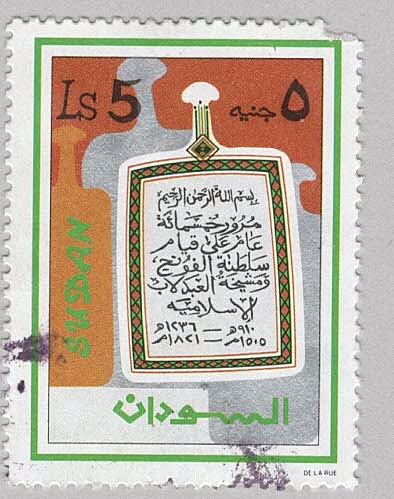 Ls 5
٥ جنيه
بسم الله الرحمن الرحيم
مرور خمسمائة
عام على قيام
سلطنة الفونج
ومشيخة العبدلاب
الاسلامية
٩١٠هـ — ١٢٣٦هـ
١٥٠٥م — ١٨٢١م
SUDAN
السودان
DE LA RUE